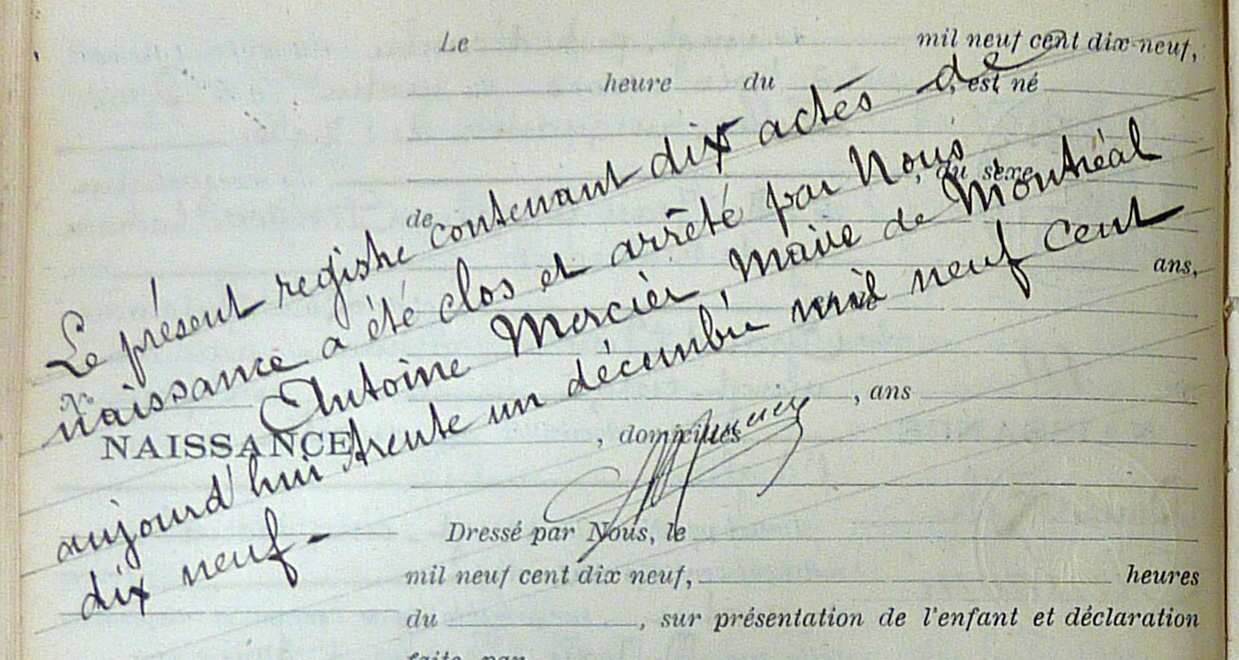 Le mil neuf cent dix-neuf,
heure du , est né
de , du sexe
Le présent registre contenant dix actés de
Naissance a été clos et arrêté par Nous
Antoine Mercier, Maire de Montréal
aujourd'hui trente un décembre mil neuf cent
dix neuf -
ans,
N
NAISSANCE
, ans
, domiciliés
Mercier
Dressé par Nous, le
mil neuf cent dix neuf, heures
du , sur présentation de l'enfant et déclaration
faite par